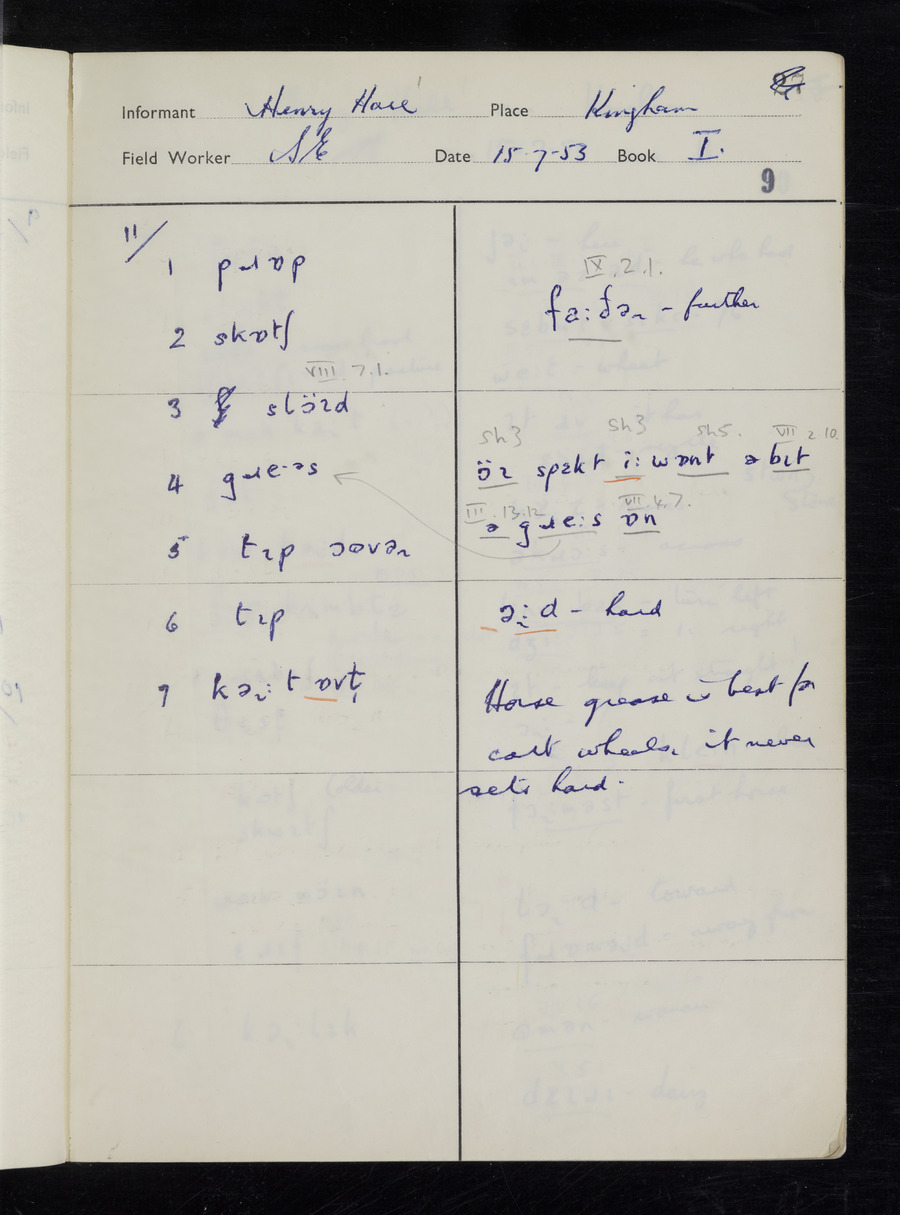 Informant Henry Hase Place Kingham
Field Worker SE Date 15-7-53 Book I.
9
11/
1 pɹɒp
2 skɒtʃ
VIII.7.1.
3 slɔ̈ɪd
4 gɹe·əs
5 tɪp ɔəvəɹ
6 tɪp
7 kəɹ:t ɒʊt
IX.2.1.
fa:ðəɹ - further
sh3 sh3 sh5. VII 2 10.
ɔ̈ɪ spɛkt i: wɒnt ə bɪt
III.13.12 VII.4.7.
ə gɹe:s ɒn
əɹ:d - hard
Horse grease is best for
cart wheels, it never
sets hard.